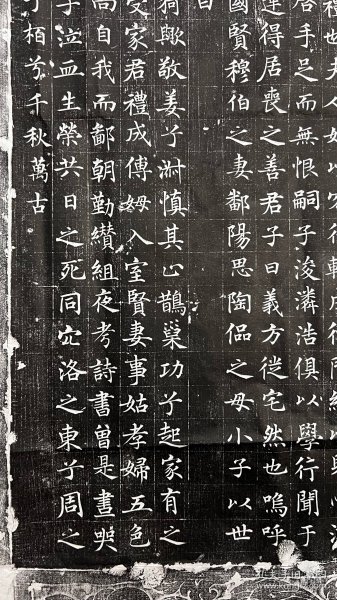 禮也夫人
啓手足而無恨嗣子浚潾浩俱以學行聞于
達得居喪之善君子曰義方徙宅然也嗚呼
國賢穆伯之妻鄱陽思陶侃之母小子以世
曰
猗歟敬姜兮淋慎其心鵲巢功兮起家有之
受家君禮成傅姆入室賢妻事姑孝婦五色
高自我而鄱朝勤纘組夜考詩書曾是晝哭
子泣血生榮共日之死同穴洛之東兮周之
栢兮千秋萬古